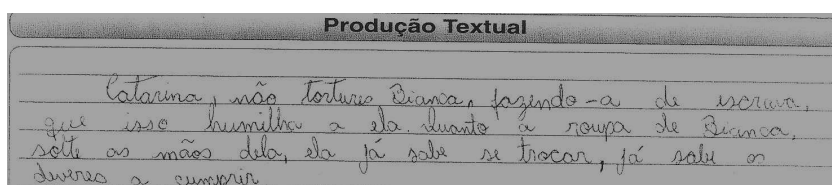 Produção Textual
Catarina, não torture Bianca, fazendo-a de escrava,
que isso humilha a ela. Quanto a roupa de Bianca,
solte as mãos dela, ela já sabe se trocar, já sabe os
deveres a cumprir